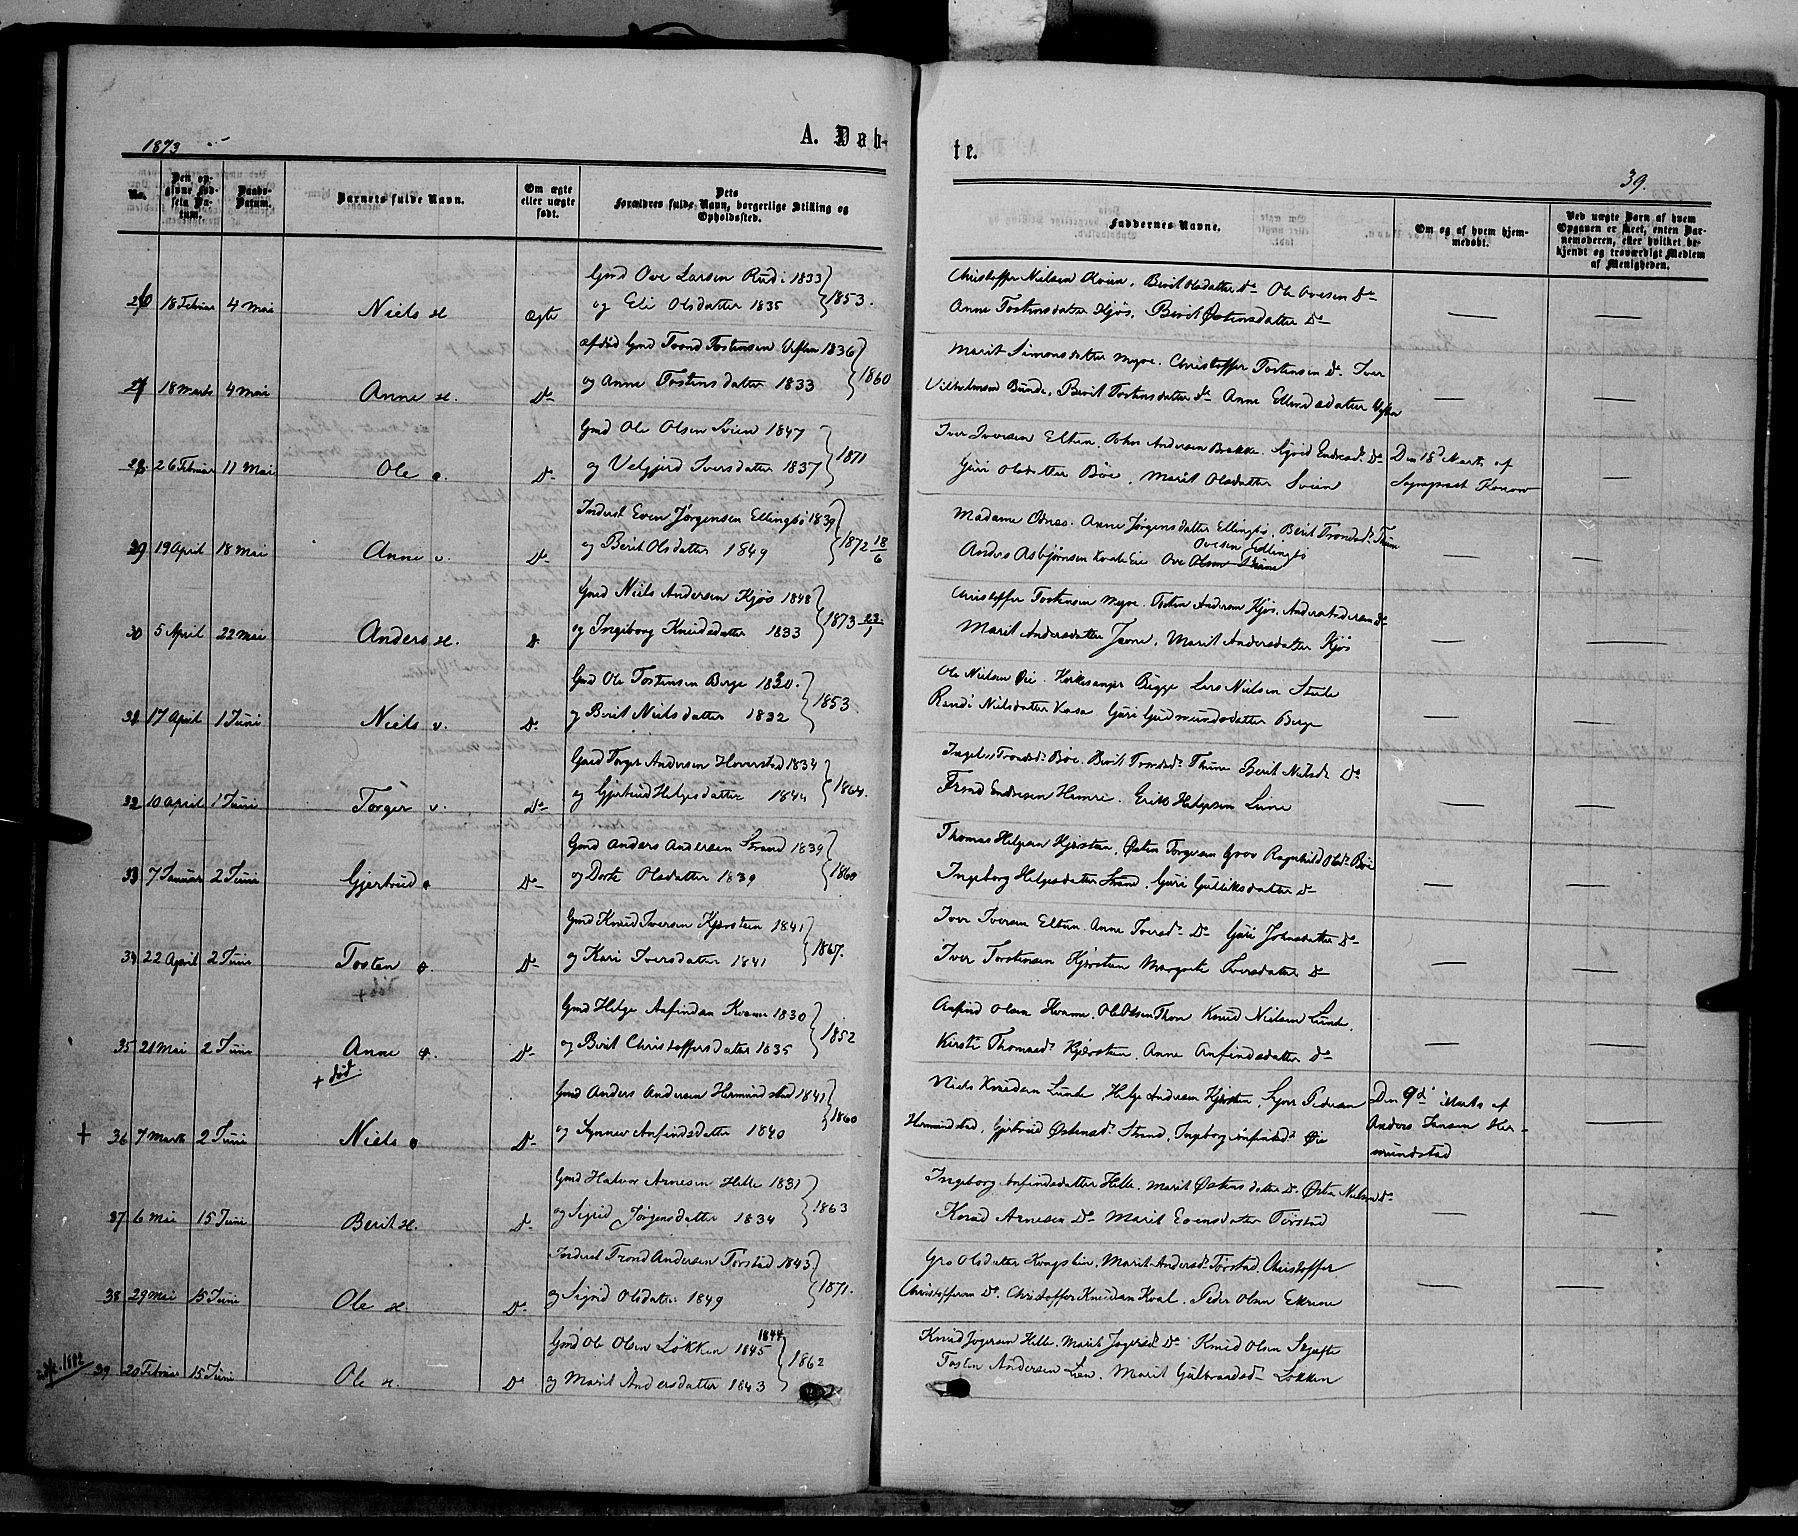 1873
A. Døb-
te.
39.
No.
Den op-
givne Fød-
sels Da-
tum.
Daabs-
Datum.
Barnets fulde Navn.
Om ægte
eller uægte
født.
Dets
Forældres fulde Navn, borgerlige Stilling og
Opholdssted.
Faddernes Navne.
Om og af hvem hjem-
medøbt.
Ved uægte Barn af hvem
Opgaven er skeet, enten Bar-
nemoderen, eller hvilket be-
kjendt og troværdigt Medlem
af Menigheden.
26 18 Februar 4 Mai Niels H. Ægte
Gmd Ove Larsen Rudi 1833
og Eli Olsdatter 1835 1853.
Christoffer Nielsen Kvien, Berit Olsdatter Do Ole Ovesen Do
Anne Tostensdatter Kjøs, Berit Østensdatter Do
27 18 Marts 4 Mai Anne H. Do
afdød Gmd Trond Tostensen 1836
og Anne Tostensdatter 1833 1860
Marit Simonsdatter Myre, Christoffer Tostensen Do Iver
Vilhelmsen Bunde, Berit Tostensdatter Do Anne Ellendsdatter
28 26 Februar 11 Mai Ole o. Do
Gmd Ole Olsen Svien 1847
og Velgjerd Iversdatter 1837 1871
Iver Iversen Eltun, John Andersen Brække, Sigrid Endresd. Do
Guri Olsdatter Bøe, Marit Olsdatter Svien
Den 18d Marts af
Sognepræst Konow
29 19 April 18 Mai Anne v. Do
Inderst Even Jørgensen Ellingbø 1839
og Berit Olsdatter 1849 1872 18/6
Madame Odnæs, Anne Jørgensdatter Ellingbø, Berit Trondsd. Thune
Ovesen Ellingbø
Anders Asbjørnsen Ove Olsen Thune
30 5 April 22 Mai Anders H. D
Gmd Niels Andersen Kjøs 1848
og Ingeborg Knudsdatter 1833 1873 23/1
Christoffer Tostensen Myre, Tosten Andersen Kjøs, Anders Andersen Do
Marit Andersdatter Marit Andersdatter Kjøs
31 17 April 1 Juni Niels v. Do
Gmd Ole Tostensen Berge 1830.
og Berit Nielsdatter 1832 1853.
Ole Nielsen Øie, Kirkesanger Bugge Lars Nielsen
Randi Nielsdatter Kasa Guri Gudmundsdatter Berge
32 10 April 1 Juni Torger v. Do
Gmd Torger Andersen Hoverstad 1834
og Gjertrud Helgesdatter 1844 1864.
Ingeleif Trondsd. Bøe, Berit Trondsd. Thune Berit Nielsd. Do
Trond Endresen Hemri, Erik Helgesen Lune
33 7 Januar 2 Juni Gjertrud o Do
Gmd Anders Andersen Strand 1839
og Dorte Olsdatter 1839 1860
Thomas Helgesen Kjørstein, Østen Torgersen Grov Ragnhild Olsd. Bøe
Ingeborg Helgesdatter Strand, Guri Gulliksdatter Do
34 22 April 2 Juni Tosten o. Do
+ død
Gmd Knud Iversen Kjørstein 1841
og Kari Iversdatter 1841 1867.
Iver Iversen Eltun, Anne Iversd. Do Guri Johnsdatter Do
Iver Torstensen Kjørstein Margrete Iversdatter Do
35 21 Mai 2 Juni Anne o. Do
+ død
Gmd Helge Anfindsen Kvame 1830
og Berit Christoffersdatter 1835 1852
Anfind Olsen Kvame, Ole Olsen Thon Knud Nielsen Lunde,
Kirsti Thomasd. Kjørstein, Anne Anfindsdatter Do
+ 36 7 Marts 2 Juni Niels o Do
Gmd Anders Andersen Hermundstad 1841
og Synnev Anfindsdatter 1840 1860
Niels Knudsen Lunde, Helge Andersen Kjørstein, Sjur Pedersen
Hermundstad, Gjertrud Østensd. Strand, Ingeborg Anfindsd. Øie
Den 9d Marts af
Anders Jensen Her-
mundstad
37 6 Mai 15 Juni Berit H. Do
Gmd Halvor Arnesen Helle 1831
og Sigrid Jørgensdatter 1834 1863
Ingeborg Anfindsdatter Helle, Marit Østensdatter Do Østen Nielsen Do
Knud Arnesen Do Marit Evensdatter Tørstad
38 29 Mai 15 Juni Ole H. Do
Inderst Trond Andersen Tørstad 1843
og Sigrid Olsdatter 1849 1871.
Gro Olsdatter Kongslien, Marit Andersd. Tørstad, Christoffer
Christoffersen Do. Christoffer Knudsen Kval, Peder Olsen Ekerne
1882 39 20 Februar 15 Juni Ole H. Do
Gmd Ole Olsen Løkken 1845 1844
og Marit Andersdatter 1843 1862
Knud Jøgersen Helle, Marit Jøgersd. Do Knud Olsen
Tosten Andersen Lien, Marit Gulbrandsd. Løkken